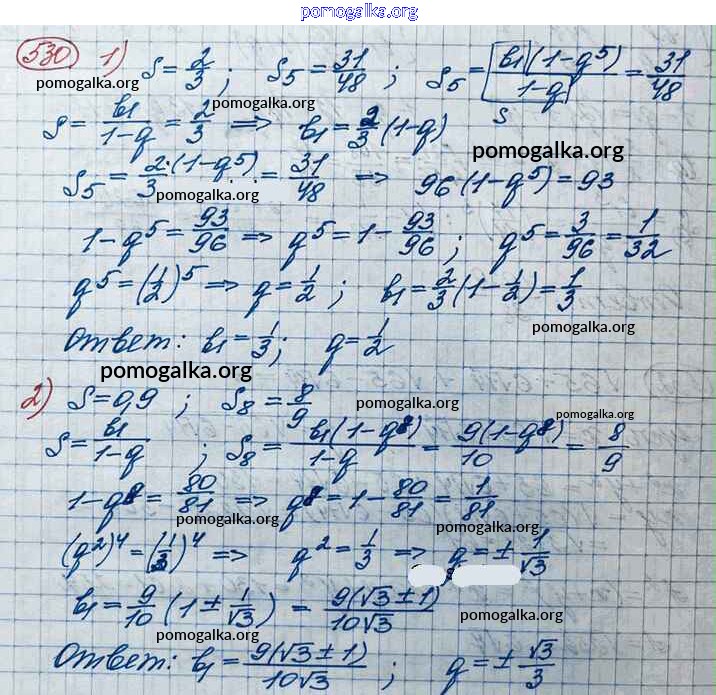 pomogalka.org
530 1) S = 2/3 ; S₅ = 31/48 ; S₅ = b₁(1-q⁵)/(1-q) = 31/48
pomogalka.org
pomogalka.org
pomogalka.org
S
S = b₁/(1-q) = 2/3 ⇒ b₁ = 2/3 (1-q)
pomogalka.org
S₅ = 2·(1-q⁵)/3 = 31/48 ⇒ 96(1-q⁵) = 93
pomogalka.org
1-q⁵ = 93/96 ⇒ q⁵ = 1 - 93/96 ; q⁵ = 3/96 = 1/32
q⁵ = (1/2)⁵ ⇒ q = 1/2 ; b₁ = 2/3 (1 - 1/2) = 1/3
pomogalka.org
Ответ: b₁ = 1/3 ; q = 1/2
pomogalka.org
2) S = 0,9 ; S₈ = 8/9
pomogalka.org
pomogalka.org
S = b₁/(1-q) ; S₈ = b₁(1-q⁸)/(1-q) = 9(1-q⁸)/10 = 8/9
pomogalka.org
1-q⁸ = 80/81 ⇒ q⁸ = 1 - 80/81 = 1/81
pomogalka.org
pomogalka.org
(q²)⁴ = (1/3)⁴ ⇒ q² = 1/3 ⇒ q = ± 1/√3
b₁ = 9/10 (1 ± 1/√3) = 9(√3 ± 1)/10√3
pomogalka.org
Ответ: b₁ = 9(√3 ± 1)/10√3 ; q = ± √3/3
pomogalka.org